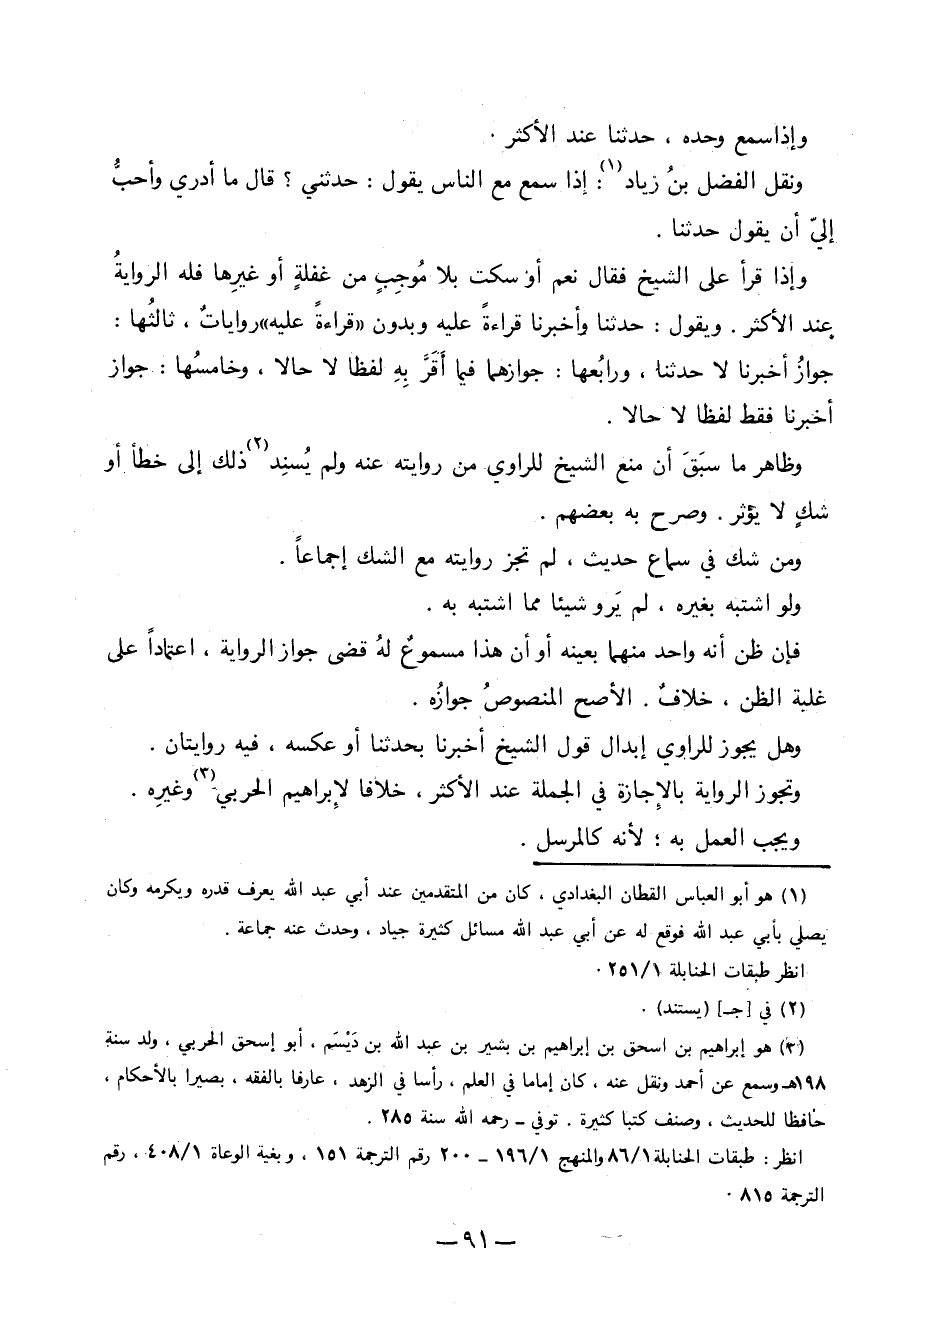 وإذا سمع وحده ، حدثنا عند الأكثر .
ونقل الفضل بنُ زياد(١): إذا سمع مع الناس يقول : حدثني ؟ قال ما أدري وأحبُّ
إليّ أن يقول حدثنا .
وإذا قرأ على الشيخ فقال نعم أو سكت بلا مُوجِبٍ من غفلةٍ أو غيرِها فله الروايةُ
عند الأكثر . ويقول : حدثنا وأخبرنا قراءةً عليه وبدون «قراءةً عليه» رواياتٌ ، ثالثُها :
جوازُ أخبرنا لا حدثنا ، ورابعُها : جوازهما فيما أَقَرَّ بِهِ لفظا لا حالا ، وخامسُها : جواز
أخبرنا فقط لفظا لا حالا .
وظاهر ما سبَقَ أن منع الشيخ للراوي من روايته عنه ولم يُسنِد(٢) ذلك إلى خطأ أو
شكٍ لا يؤثر . وصرح به بعضهم .
ومن شك في سماع حديث ، لم تجز روايته مع الشك إجماعاً .
ولو اشتبه بغيره ، لم يَرو شيئا مما اشتبه به .
فإن ظن أنه واحد منهما بعينه أو أن هذا مسموعٌ لهُ قضى جواز الرواية ، اعتماداً على
غلبة الظن ، خلافٌ . الأصح المنصوصُ جوازُه .
وهل يجوز للراوي إبدال قول الشيخ أخبرنا بحدثنا أو عكسه ، فيه روايتان .
وتجوز الرواية بالإجازة في الجملة عند الأكثر ، خلافا لإبراهيم الحربي(٣) وغيرِه .
ويجب العمل به ؛ لأنه كالمرسل .
(١) هو أبو العباس القطان البغدادي ، كان من المتقدمين عند أبي عبد الله يعرف قدره ويكرمه وكان
يصلي بأبي عبد الله فوقع له عن أبي عبد الله مسائل كثيرة جياد ، وحدث عنه جماعة .
انظر طبقات الحنابلة ٢٥١/١ .
(٢) في [جـ] (يستند) .
(٣) هو إبراهيم بن اسحق بن إبراهيم بن بشير بن عبد الله بن دَيْسَم ، أبو إسحق الحربي ، ولد سنة
١٩٨هـ وسمع عن أحمد ونقل عنه ، كان إماما في العلم ، رأسا في الزهد ، عارفا بالفقه ، بصيرا بالأحكام ،
حافظا للحديث ، وصنف كتبا كثيرة . توفي ــ رحمه الله سنة ٢٨٥ .
انظر : طبقات الحنابلة ٨٦/١ والمنهج ١٩٦/١ ــ ٢٠٠ رقم الترجمة ١٥١ ، وبغية الوعاة ٤٠٨/١ ، رقم
الترجمة ٨١٥ .
ــ ٩١ ــ